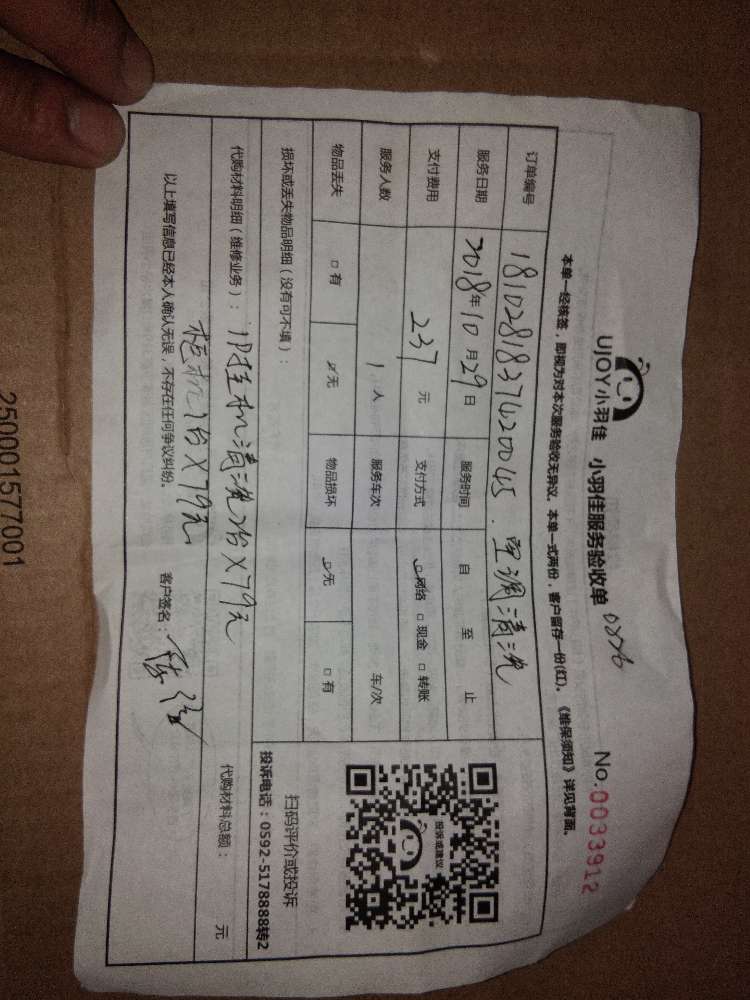 UJOY小羽佳 小羽佳服务验收单 No.0033912
本单一经核签，即视为对本次服务验收无异议，本单一式两份，客户留存一份(红)。《维保须知》详见背面。
订单编号 1810281837420045. 空调清洗
服务日期 2018年10月29日 服务时间 自 至 止
支付费用 237元 支付方式 □网络 □现金 □转账
服务人数 1人 服务车次 车/次
物品丢失 □有 □无 物品损坏 □无 □有
损坏或丢失物品明细（没有可不填）：
投诉或建议
扫码评价或投诉
投诉电话：0592-5178888转2
代购材料明细（维修业务）： 挂机清洗 台X79元
柜机1台X79元
代购材料总额： 元
以上填写信息已经本人确认无误，不存在任何争议纠纷。 客户签名：
250001577001